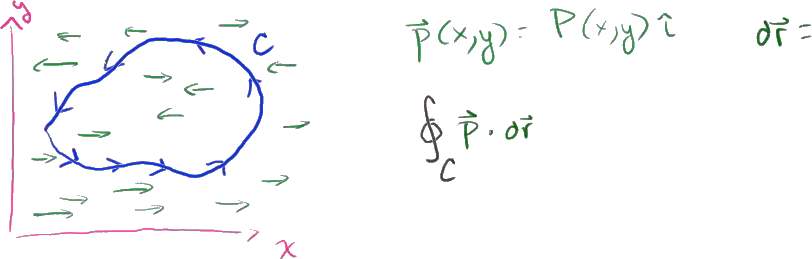 y
C
x
P⃗(x,y) = P(x,y) î
dr⃗ =
∮_C P⃗ · dr⃗